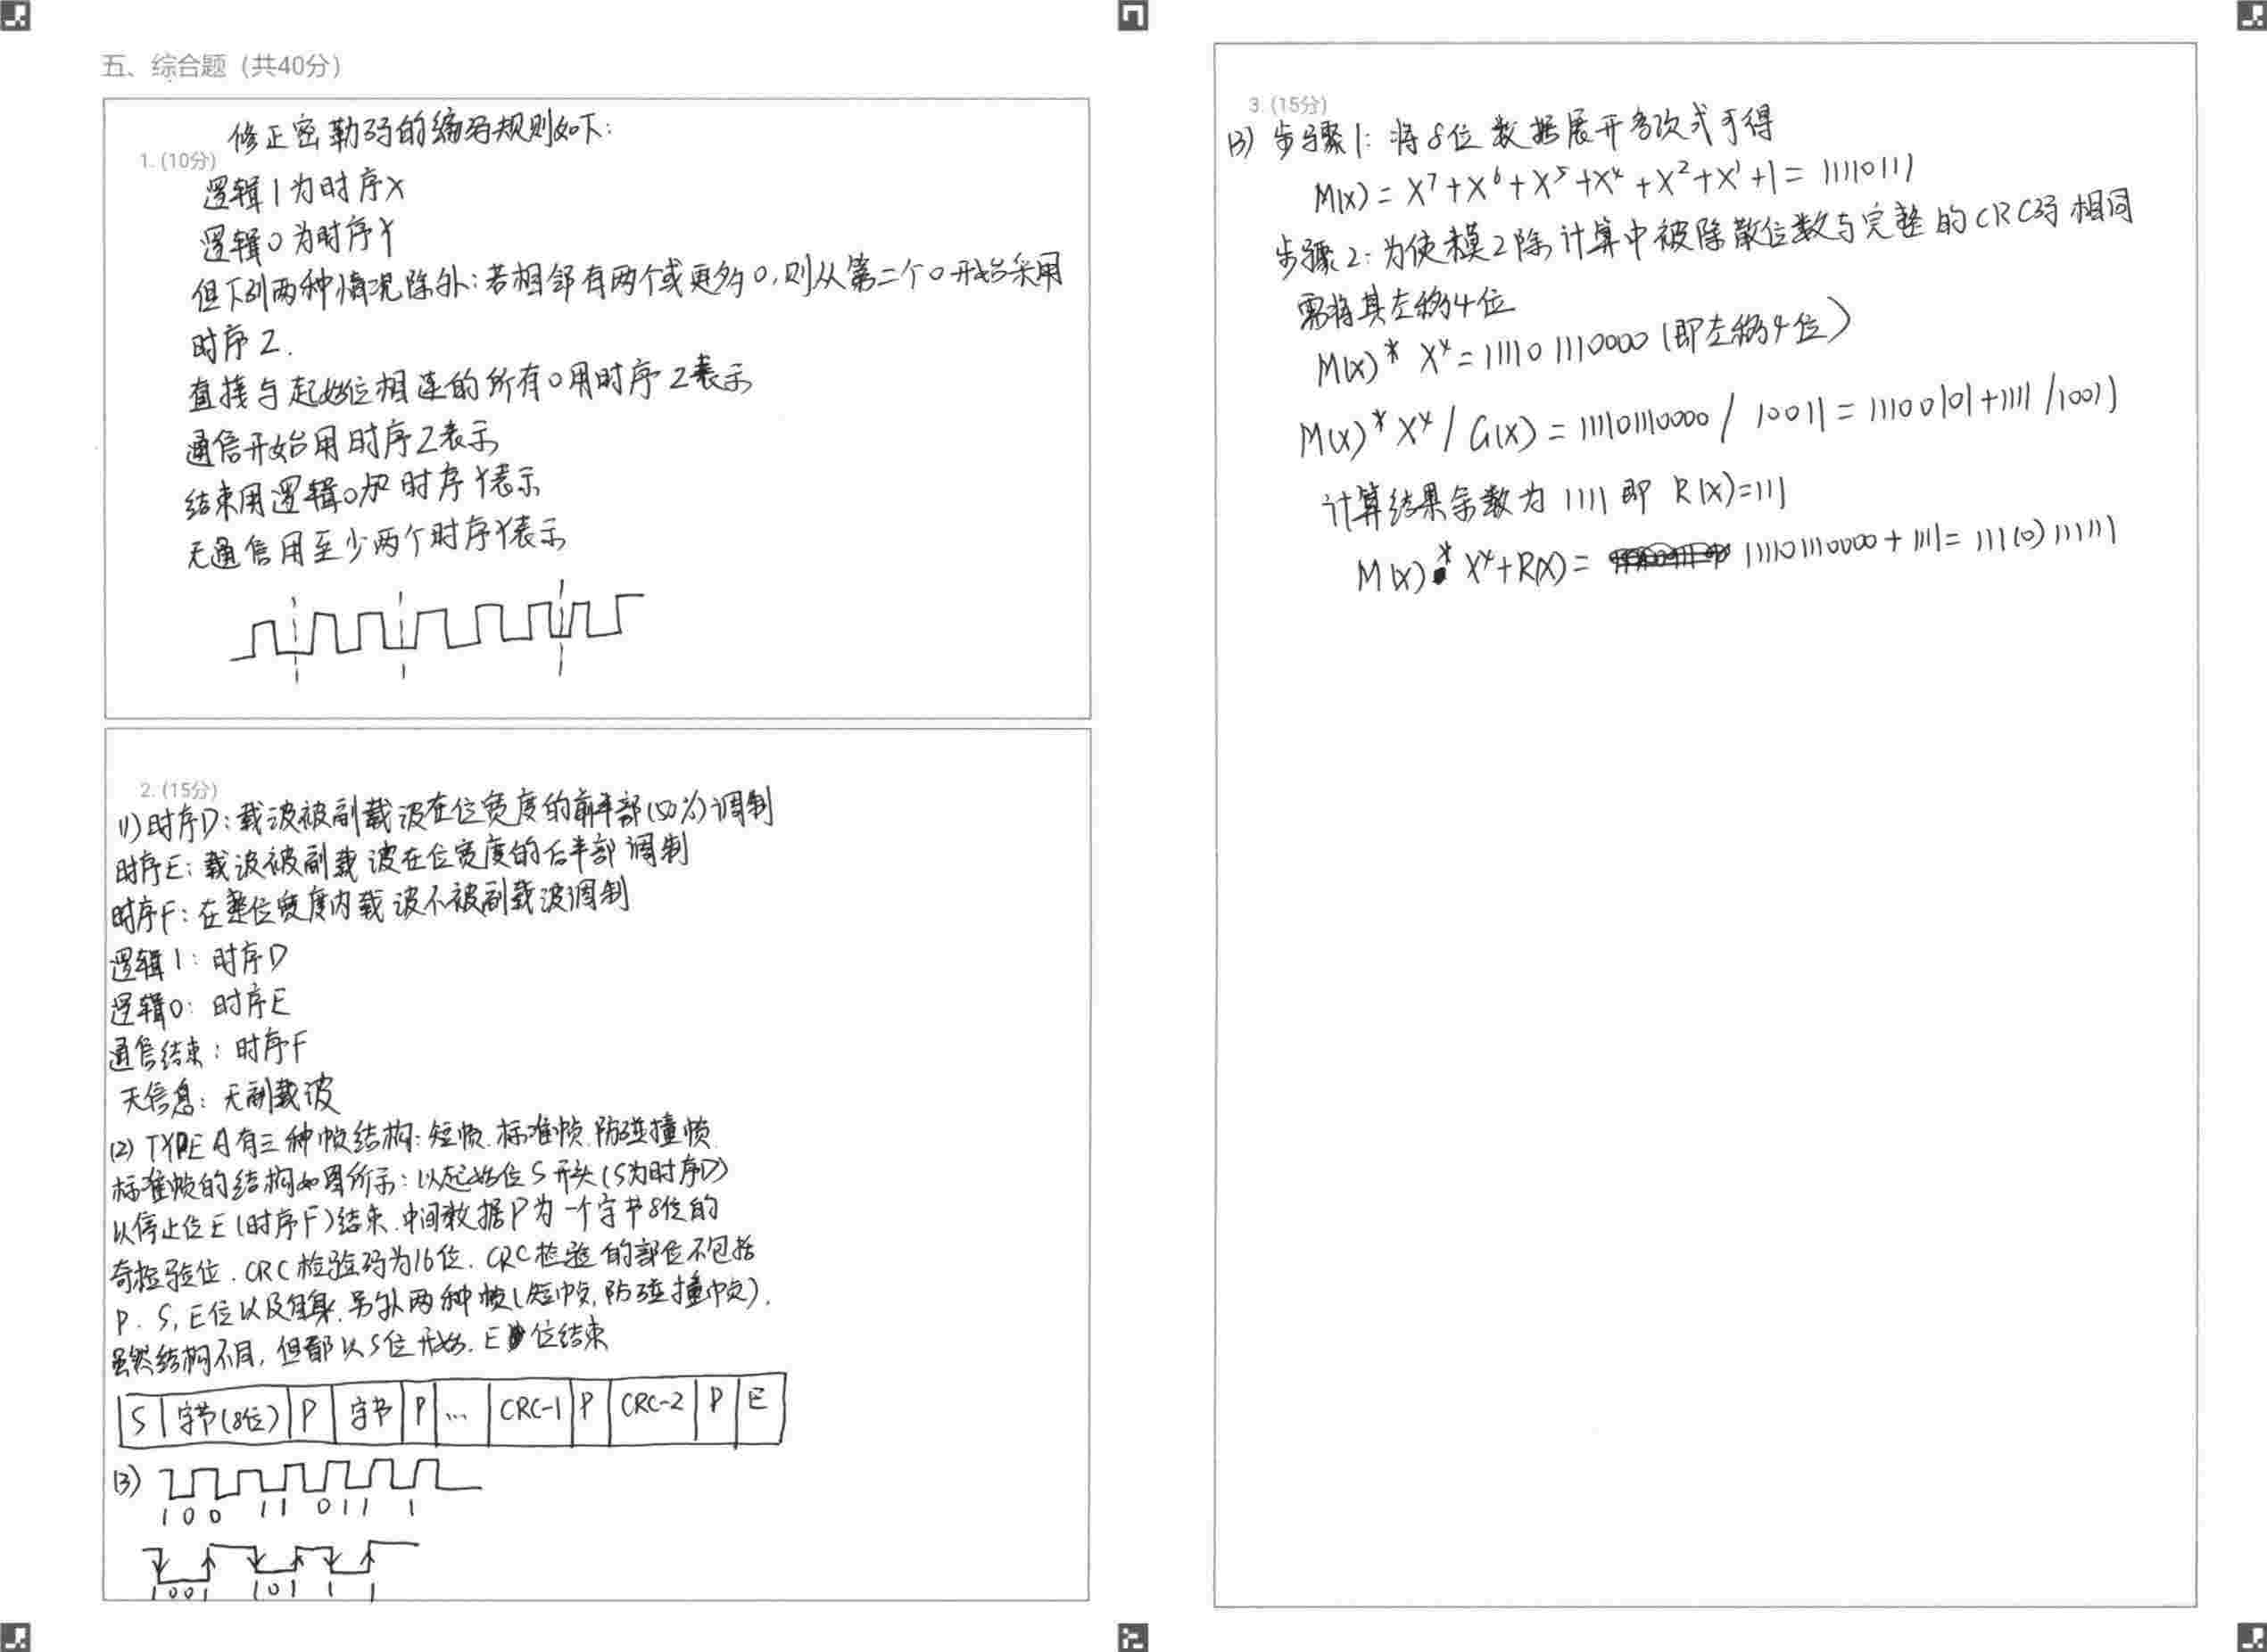 五、综合题（共40分）
修正密勒码的编码规则如下：
1. (10分)
逻辑1为时序X
逻辑0为时序Y
但下列两种情况除外：若相邻有两个或更多0，则从第二个0开始采用
时序Z.
直接与起始位相连的所有0用时序Z表示
通信开始用时序Z表示
结束用逻辑0加时序Y表示
无通信用至少两个时序Y表示
2. (15分)
(1) 时序D：载波被副载波在位宽度的前半部(50%)调制
时序E：载波被副载波在位宽度的后半部调制
时序F：在整位宽度内载波不被副载波调制
逻辑1：时序D
逻辑0：时序E
通信结束：时序F
无信息：无副载波
(2) TYPE A有三种帧结构：短帧.标准帧.防碰撞帧.
标准帧的结构如图所示：以起始位S开头(S为时序D)
以停止位E(时序F)结束.中间数据P为一个字节8位的
奇检验位.CRC检验码为16位.CRC检验的部位不包括
P.S,E位以及自身.另外两种帧(短帧,防碰撞帧).
虽然结构不同,但都以S位开始.E位结束
S 字节(8位) P 字节 P ... CRC-1 P CRC-2 P E
(3)
1 0 0 1 1 0 1 1 1
1 0 0 1 1 0 1 1 1
3. (15分)
(3) 步骤1：将8位数据展开多项式可得
M(x) = X⁷+X⁶+X⁵+X⁴+X²+X¹+1 = 11110111
步骤2：为使模2除计算中被除数位数与完整的CRC码相同
需将其左移4位
M(x)* X⁴ = 111101110000 (即左移4位)
M(x)* X⁴ / G(x) = 111101110000 / 10011 = 11100101+1111 /10011
计算结果余数为1111即 R(x)=111
M(x)* X⁴+R(x) = 111101110000 + 1111 = 111101111111